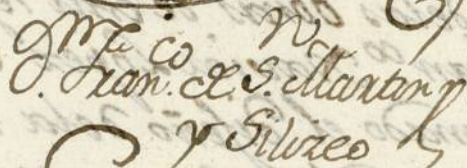 D. Fran.co de S. Martin
y Silizeo